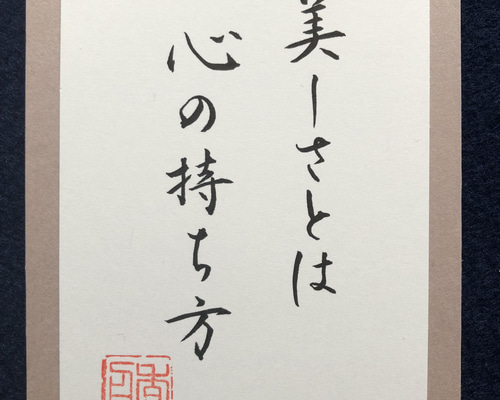 美しさとは
心の持ち方